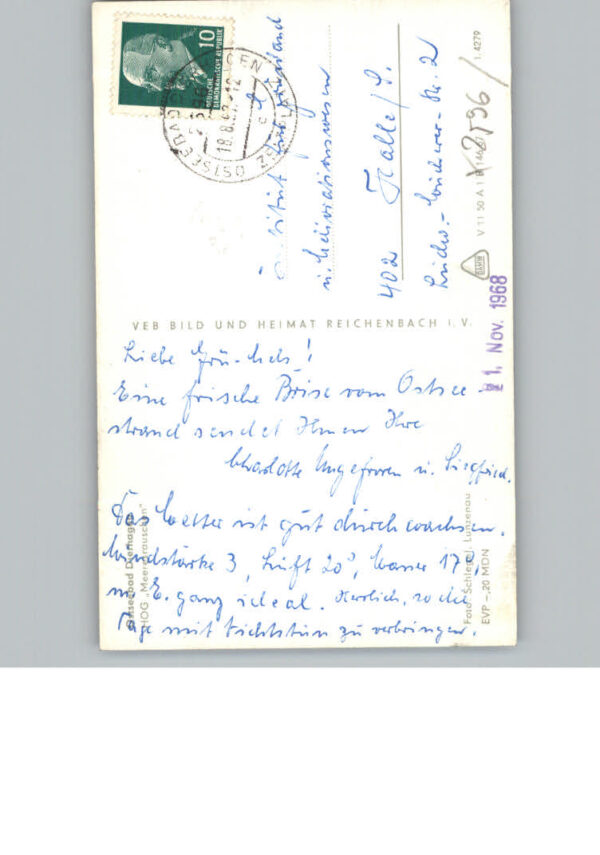 Liebe Grü-Mels!
Eine frische Brise vom Ostsee-
strand sendet Ihnen Ihre
Charlotte Ungefroren u. Siegfried.
Das Wetter ist gut durchwachsen.
Windstärke 3, Luft 20°, Wasser 17°,
m. E. ganz ideal. Herrlich, so die
Tage mit Nichtstun zu verbringen.
VEB BILD UND HEIMAT REICHENBACH i. V.
Ostseebad Dierhagen
HOG „Meeresrauschen"
Foto: Schlegel, Lunzenau
EVP -,20 MDN
Institut für
402 Halle/S.
V 11 50 A 1
1.4279
21. Nov. 1968
10
DEUTSCHE
DEMOKRATISCHE REPUBLIK
OSTSEEBAD DIERHAGEN
18.8.